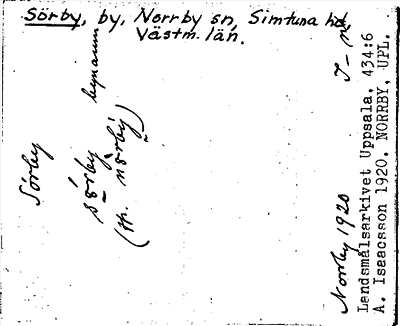 Sörby, by, Norrby sn, Simtuna hd,
Västm. län.
Sörby
sǫ́rby bynamn
(jfr. nǫrby)
Norrby 1920
Landsmålsarkivet Uppsala. 434:6
A. Isaacsson 1920. NORRBY, UPL.